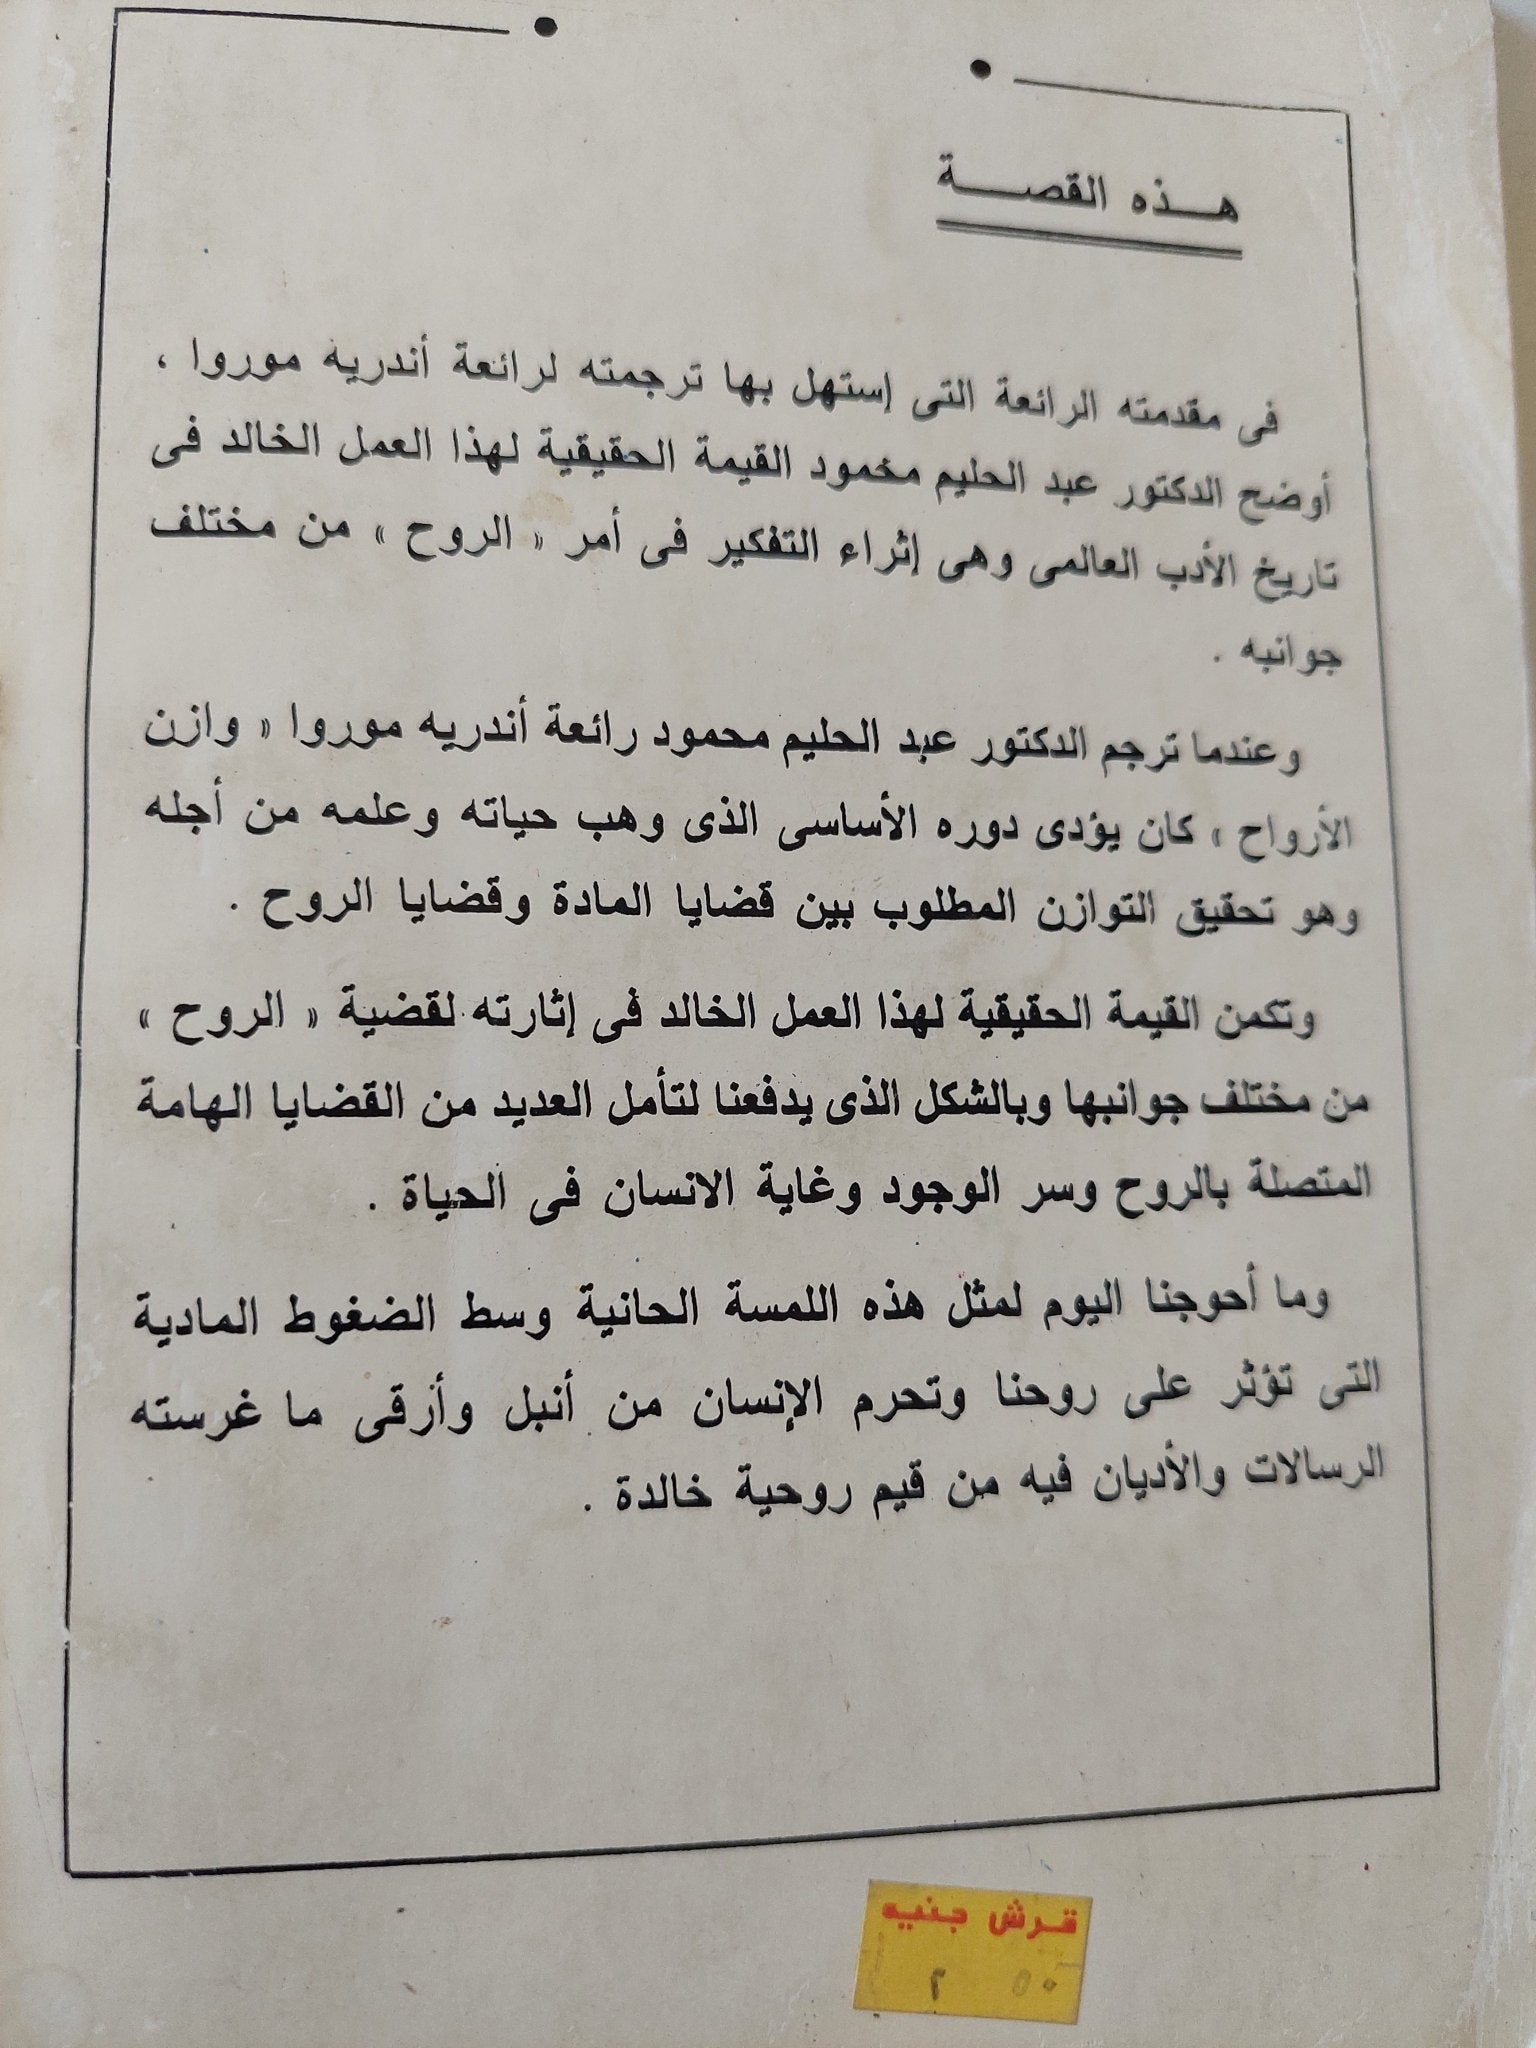 هـــذه القصــــة
فى مقدمته الرائعة التى إستهل بها ترجمته لرائعة أندريه موروا ،
أوضح الدكتور عبد الحليم مخمود القيمة الحقيقية لهذا العمل الخالد فى
تاريخ الأدب العالمى وهى إثراء التفكير فى أمر « الروح » من مختلف
جوانبه .
وعندما ترجم الدكتور عبد الحليم محمود رائعة أندريه موروا « وازن
الأرواح » كان يؤدى دوره الأساسى الذى وهب حياته وعلمه من أجله
وهو تحقيق التوازن المطلوب بين قضايا المادة وقضايا الروح .
وتكمن القيمة الحقيقية لهذا العمل الخالد فى إثارته لقضية « الروح »
من مختلف جوانبها وبالشكل الذى يدفعنا لتأمل العديد من القضايا الهامة
المتصلة بالروح وسر الوجود وغاية الانسان فى الحياة .
وما أحوجنا اليوم لمثل هذه اللمسة الحانية وسط الضغوط المادية
التى تؤثر على روحنا وتحرم الإنسان من أنبل وأرقى ما غرسته
الرسالات والأديان فيه من قيم روحية خالدة .
قرش جنيه
٥٠ ٢